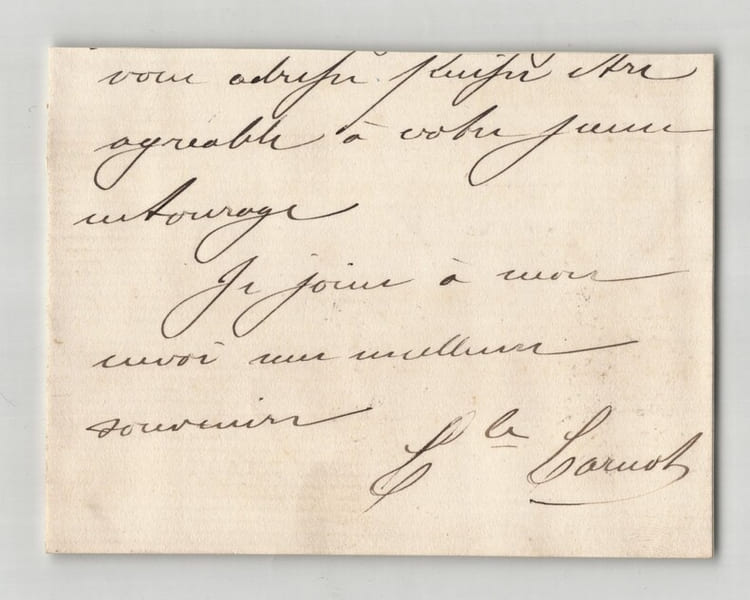 vous adresse puisse être
agréable à votre jeune
entourage
Je joins à mon
envoi mes meilleurs
souvenirs
C le Carnot